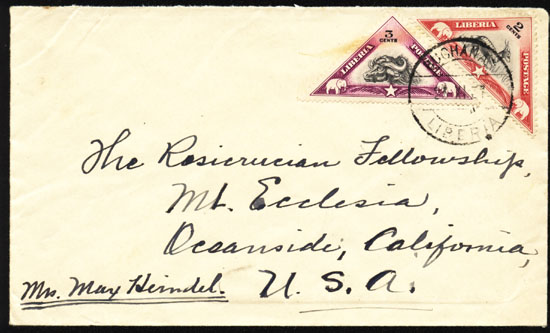 3
CENTS
LIBERIA
POSTAGE
2
CENTS
LIBERIA
POSTAGE
LIBERIA
The Rosicrucian Fellowship,
Mt. Ecclesia,
Oceanside, California,
Mrs. Max Heindel. U. S. A.